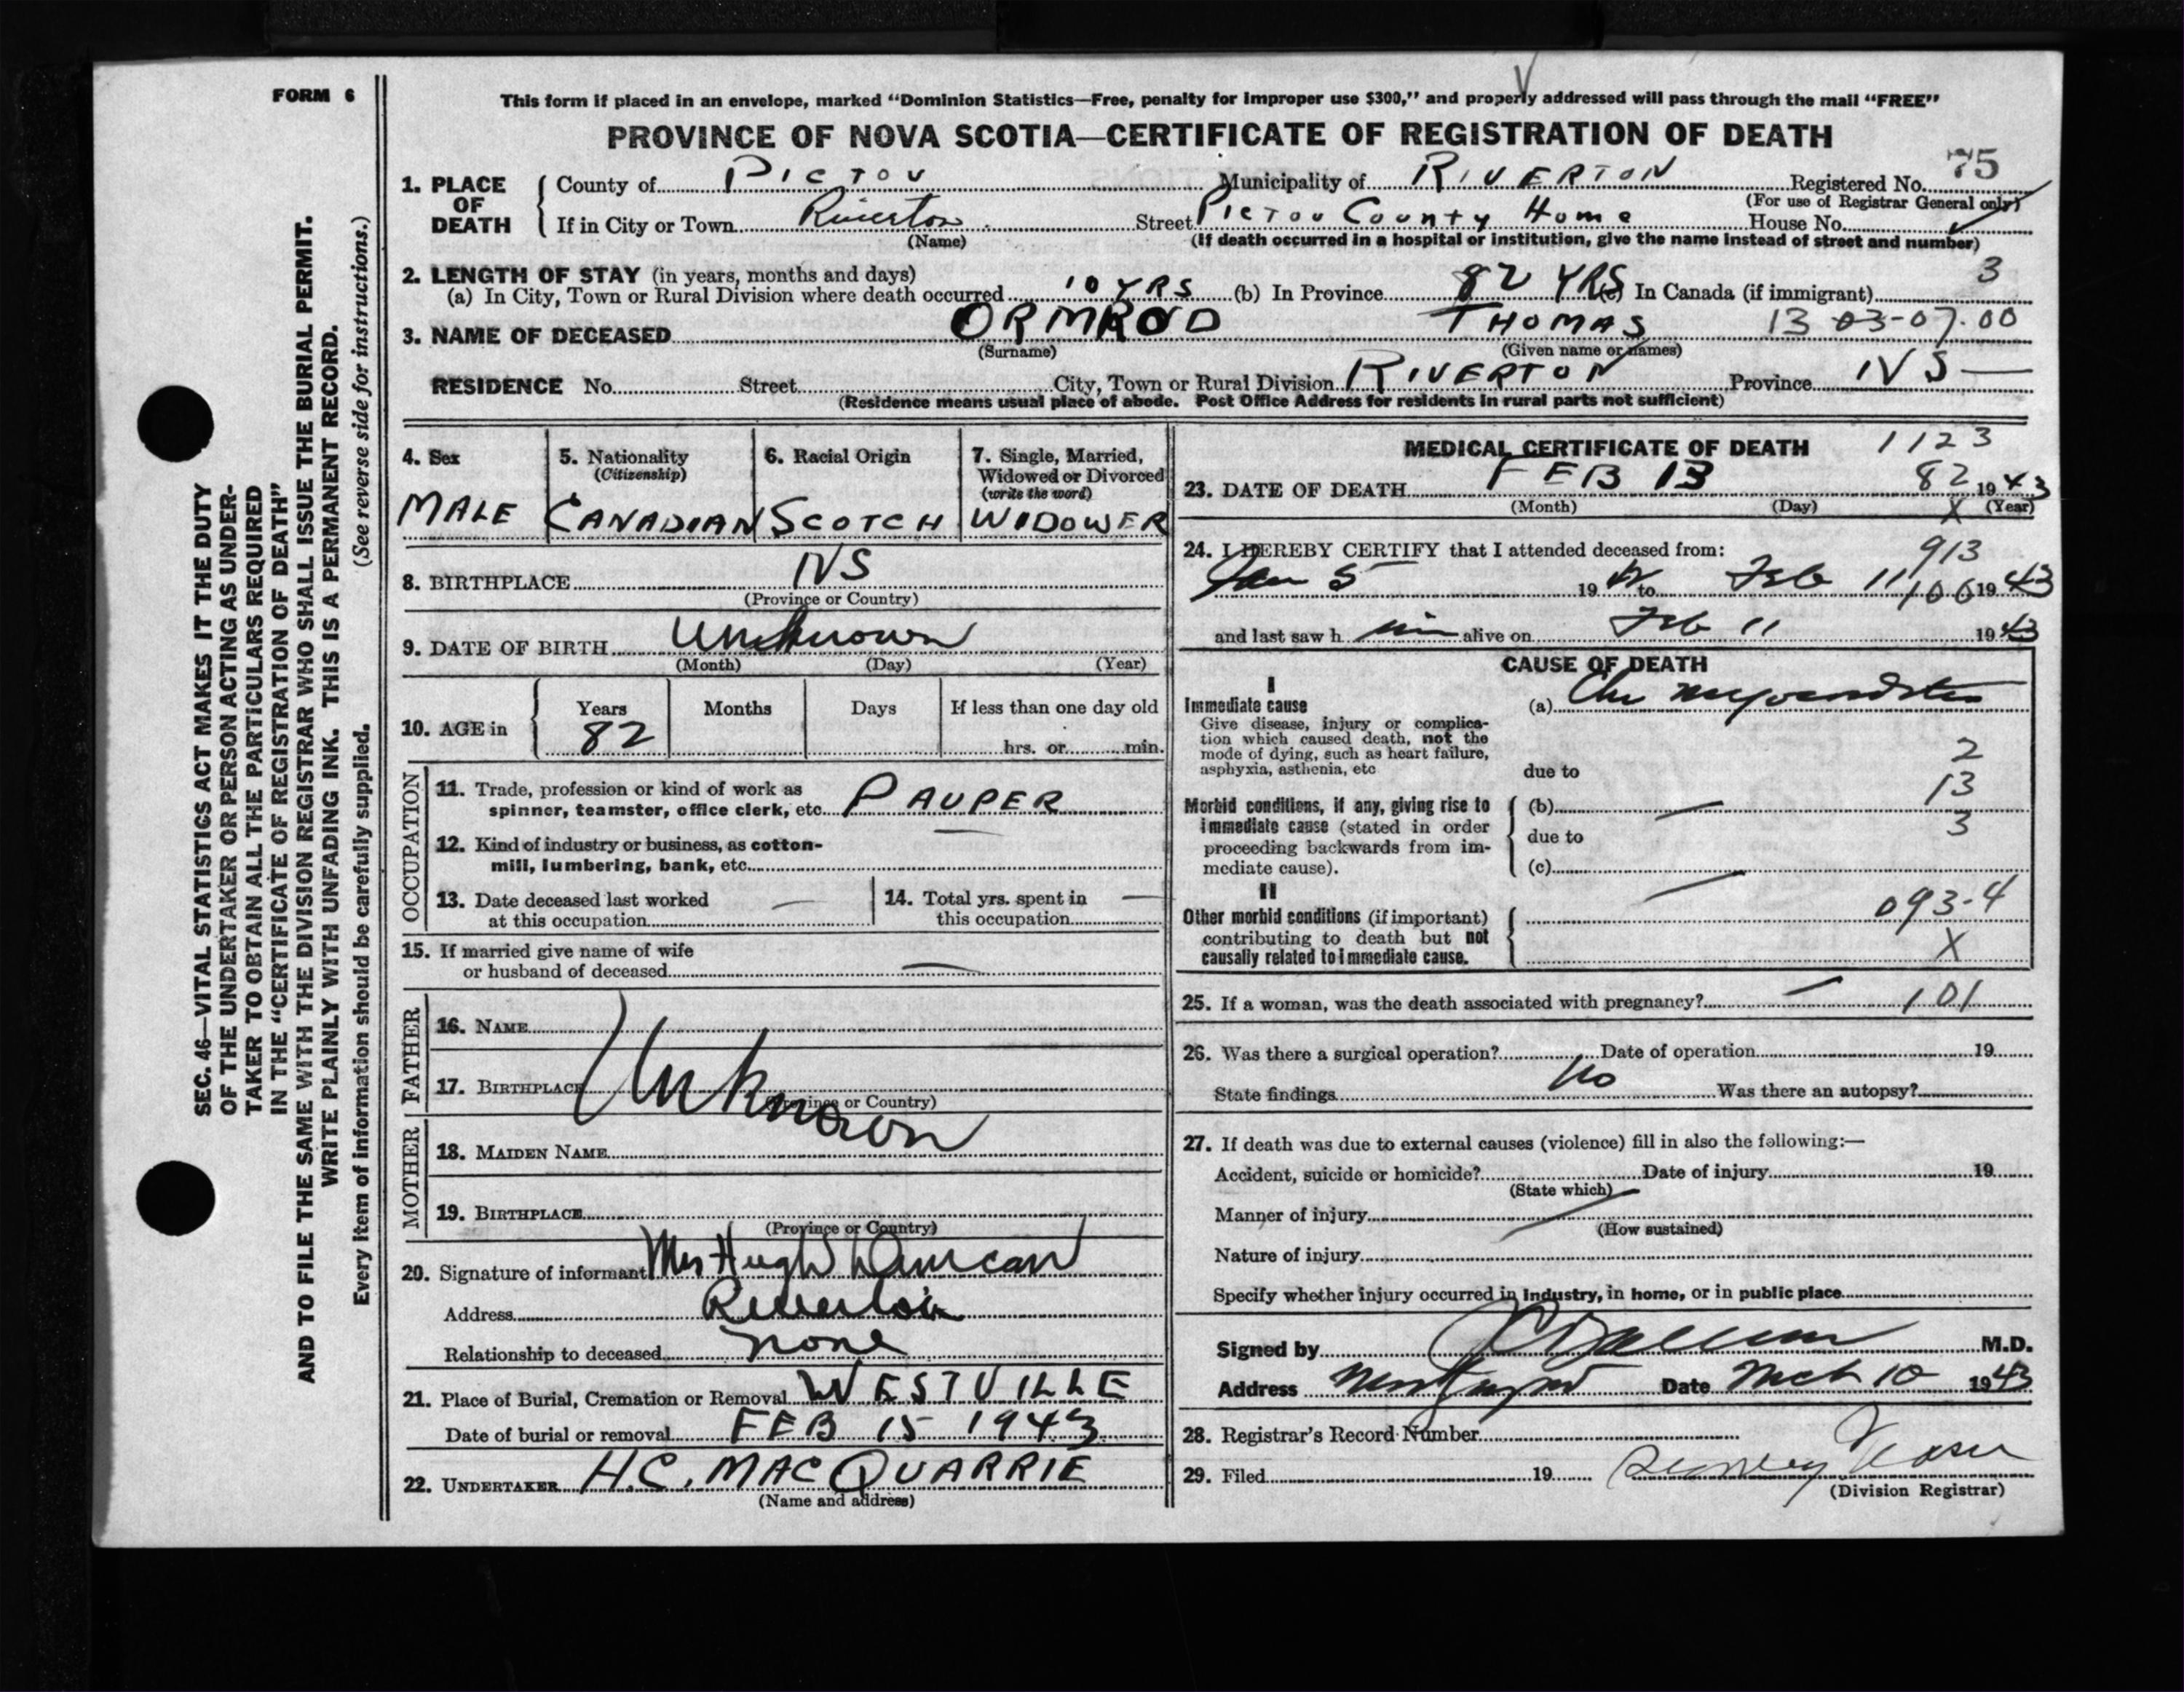 FORM 6
This form if placed in an envelope, marked “Dominion Statistics—Free, penalty for improper use $300,” and properly addressed will pass through the mail “FREE”
PROVINCE OF NOVA SCOTIA—CERTIFICATE OF REGISTRATION OF DEATH
75
1. PLACE OF DEATH County of PICTOU Municipality of RIVERTON Registered No.
(For use of Registrar General only)
If in City or Town Riverton Street PICTOU COUNTY HOME House No.
(Name) (If death occurred in a hospital or institution, give the name instead of street and number)
2. LENGTH OF STAY (in years, months and days) 3
(a) In City, Town or Rural Division where death occurred 10 YRS (b) In Province 82 YRS (c) In Canada (if immigrant)
3. NAME OF DECEASED ORMROD THOMAS 13 03-07.00
(Surname) (Given name or names)
RESIDENCE No. Street City, Town or Rural Division RIVERTON Province NS
(Residence means usual place of abode. Post Office Address for residents in rural parts not sufficient)
4. Sex 5. Nationality (Citizenship) 6. Racial Origin 7. Single, Married, Widowed or Divorced (write the word)
MALE CANADIAN SCOTCH WIDOWER
8. BIRTHPLACE NS
(Province or Country)
9. DATE OF BIRTH Unknown
(Month) (Day) (Year)
10. AGE in Years Months Days If less than one day old
82 hrs. or min.
OCCUPATION
11. Trade, profession or kind of work as
spinner, teamster, office clerk, etc. PAUPER
12. Kind of industry or business, as cotton-
mill, lumbering, bank, etc. —
13. Date deceased last worked at this occupation — 14. Total yrs. spent in this occupation —
15. If married give name of wife
or husband of deceased —
FATHER
16. NAME
17. BIRTHPLACE Unknown
(Province or Country)
MOTHER
18. MAIDEN NAME
19. BIRTHPLACE
(Province or Country)
20. Signature of informant Mrs Hugh Duncan
Address Riverton
Relationship to deceased none
21. Place of Burial, Cremation or Removal WESTVILLE
Date of burial or removal FEB 15 1943
22. UNDERTAKER H.C. MACQUARRIE
(Name and address)
MEDICAL CERTIFICATE OF DEATH 1123
23. DATE OF DEATH FEB 13 82 1943
(Month) (Day) X (Year)
24. I HEREBY CERTIFY that I attended deceased from: 913
Jan 5 19 to Feb 11 100 1943
and last saw him alive on Feb 11 1943
CAUSE OF DEATH
I
Immediate cause (a) Chr Myocarditis
Give disease, injury or complica-
tion which caused death, not the
mode of dying, such as heart failure,
asphyxia, asthenia, etc due to 2
13
Morbid conditions, if any, giving rise to (b) —
immediate cause (stated in order due to 3
proceeding backwards from im-
mediate cause). (c)
II —
Other morbid conditions (if important) 093-4
contributing to death but not
causally related to immediate cause. X
25. If a woman, was the death associated with pregnancy? — 101
26. Was there a surgical operation? Date of operation 19
No
State findings Was there an autopsy?
27. If death was due to external causes (violence) fill in also the following:—
Accident, suicide or homicide? Date of injury 19
(State which)
Manner of injury
(How sustained)
Nature of injury
Specify whether injury occurred in industry, in home, or in public place
Signed by M.D.
Address Date Mch 10 1943
28. Registrar's Record Number
29. Filed 19
(Division Registrar)
SEC. 46—VITAL STATISTICS ACT MAKES IT THE DUTY
OF THE UNDERTAKER OR PERSON ACTING AS UNDER-
TAKER TO OBTAIN ALL THE PARTICULARS REQUIRED
IN THE “CERTIFICATE OF REGISTRATION OF DEATH”
AND TO FILE THE SAME WITH THE DIVISION REGISTRAR WHO SHALL ISSUE THE BURIAL PERMIT.
WRITE PLAINLY WITH UNFADING INK. THIS IS A PERMANENT RECORD.
Every item of information should be carefully supplied. (See reverse side for instructions.)